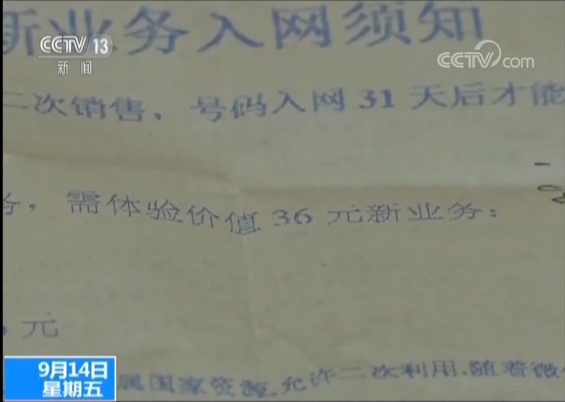 新业务入网须知
CCTV 13
新闻
CCTV.com
二次销售，号码入网31天后才能
务，需体验价值36元新业务：
元
9月14日
星期五
属国家资源,允许二次利用,随着微